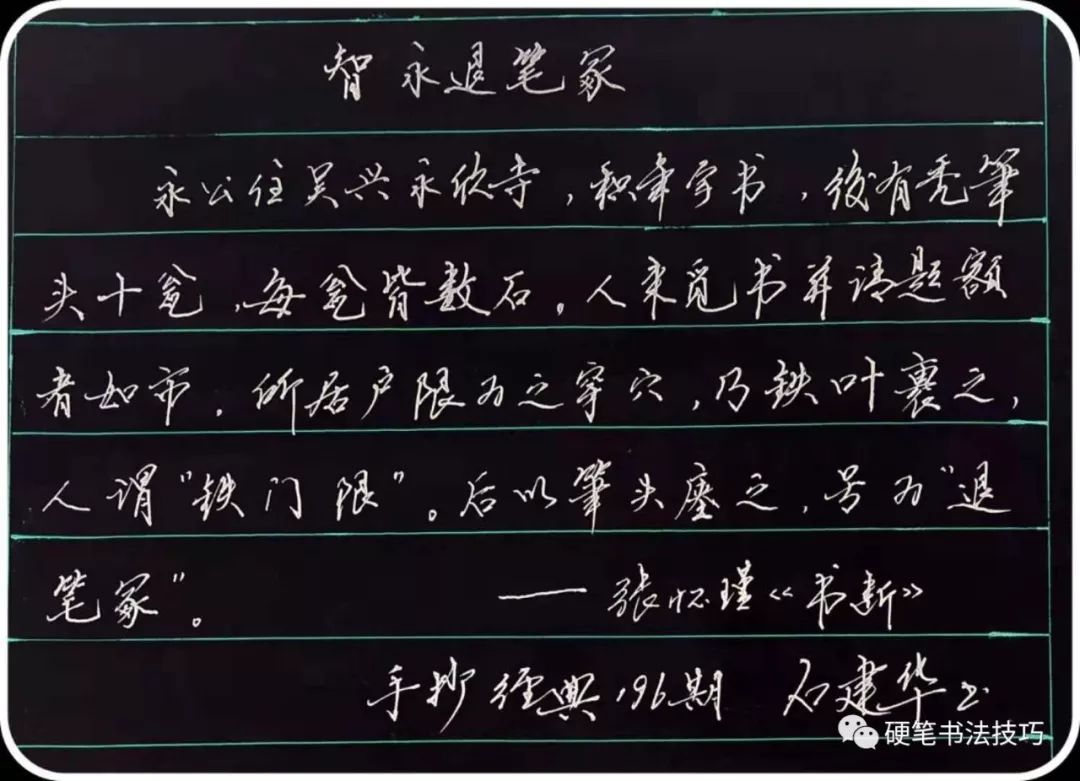 智永退笔冢
永公住吴兴永欣寺，积年学书，後有秃筆
头十瓮，每瓮皆数石。人来觅书并请题额
者如市。所居户限为之穿穴，乃铁叶裹之，
人谓“铁门限”。后以筆头瘗之，号为“退
笔冢”。 ——张怀瑾《书断》
手抄经典196期 石建华书
硬笔书法技巧